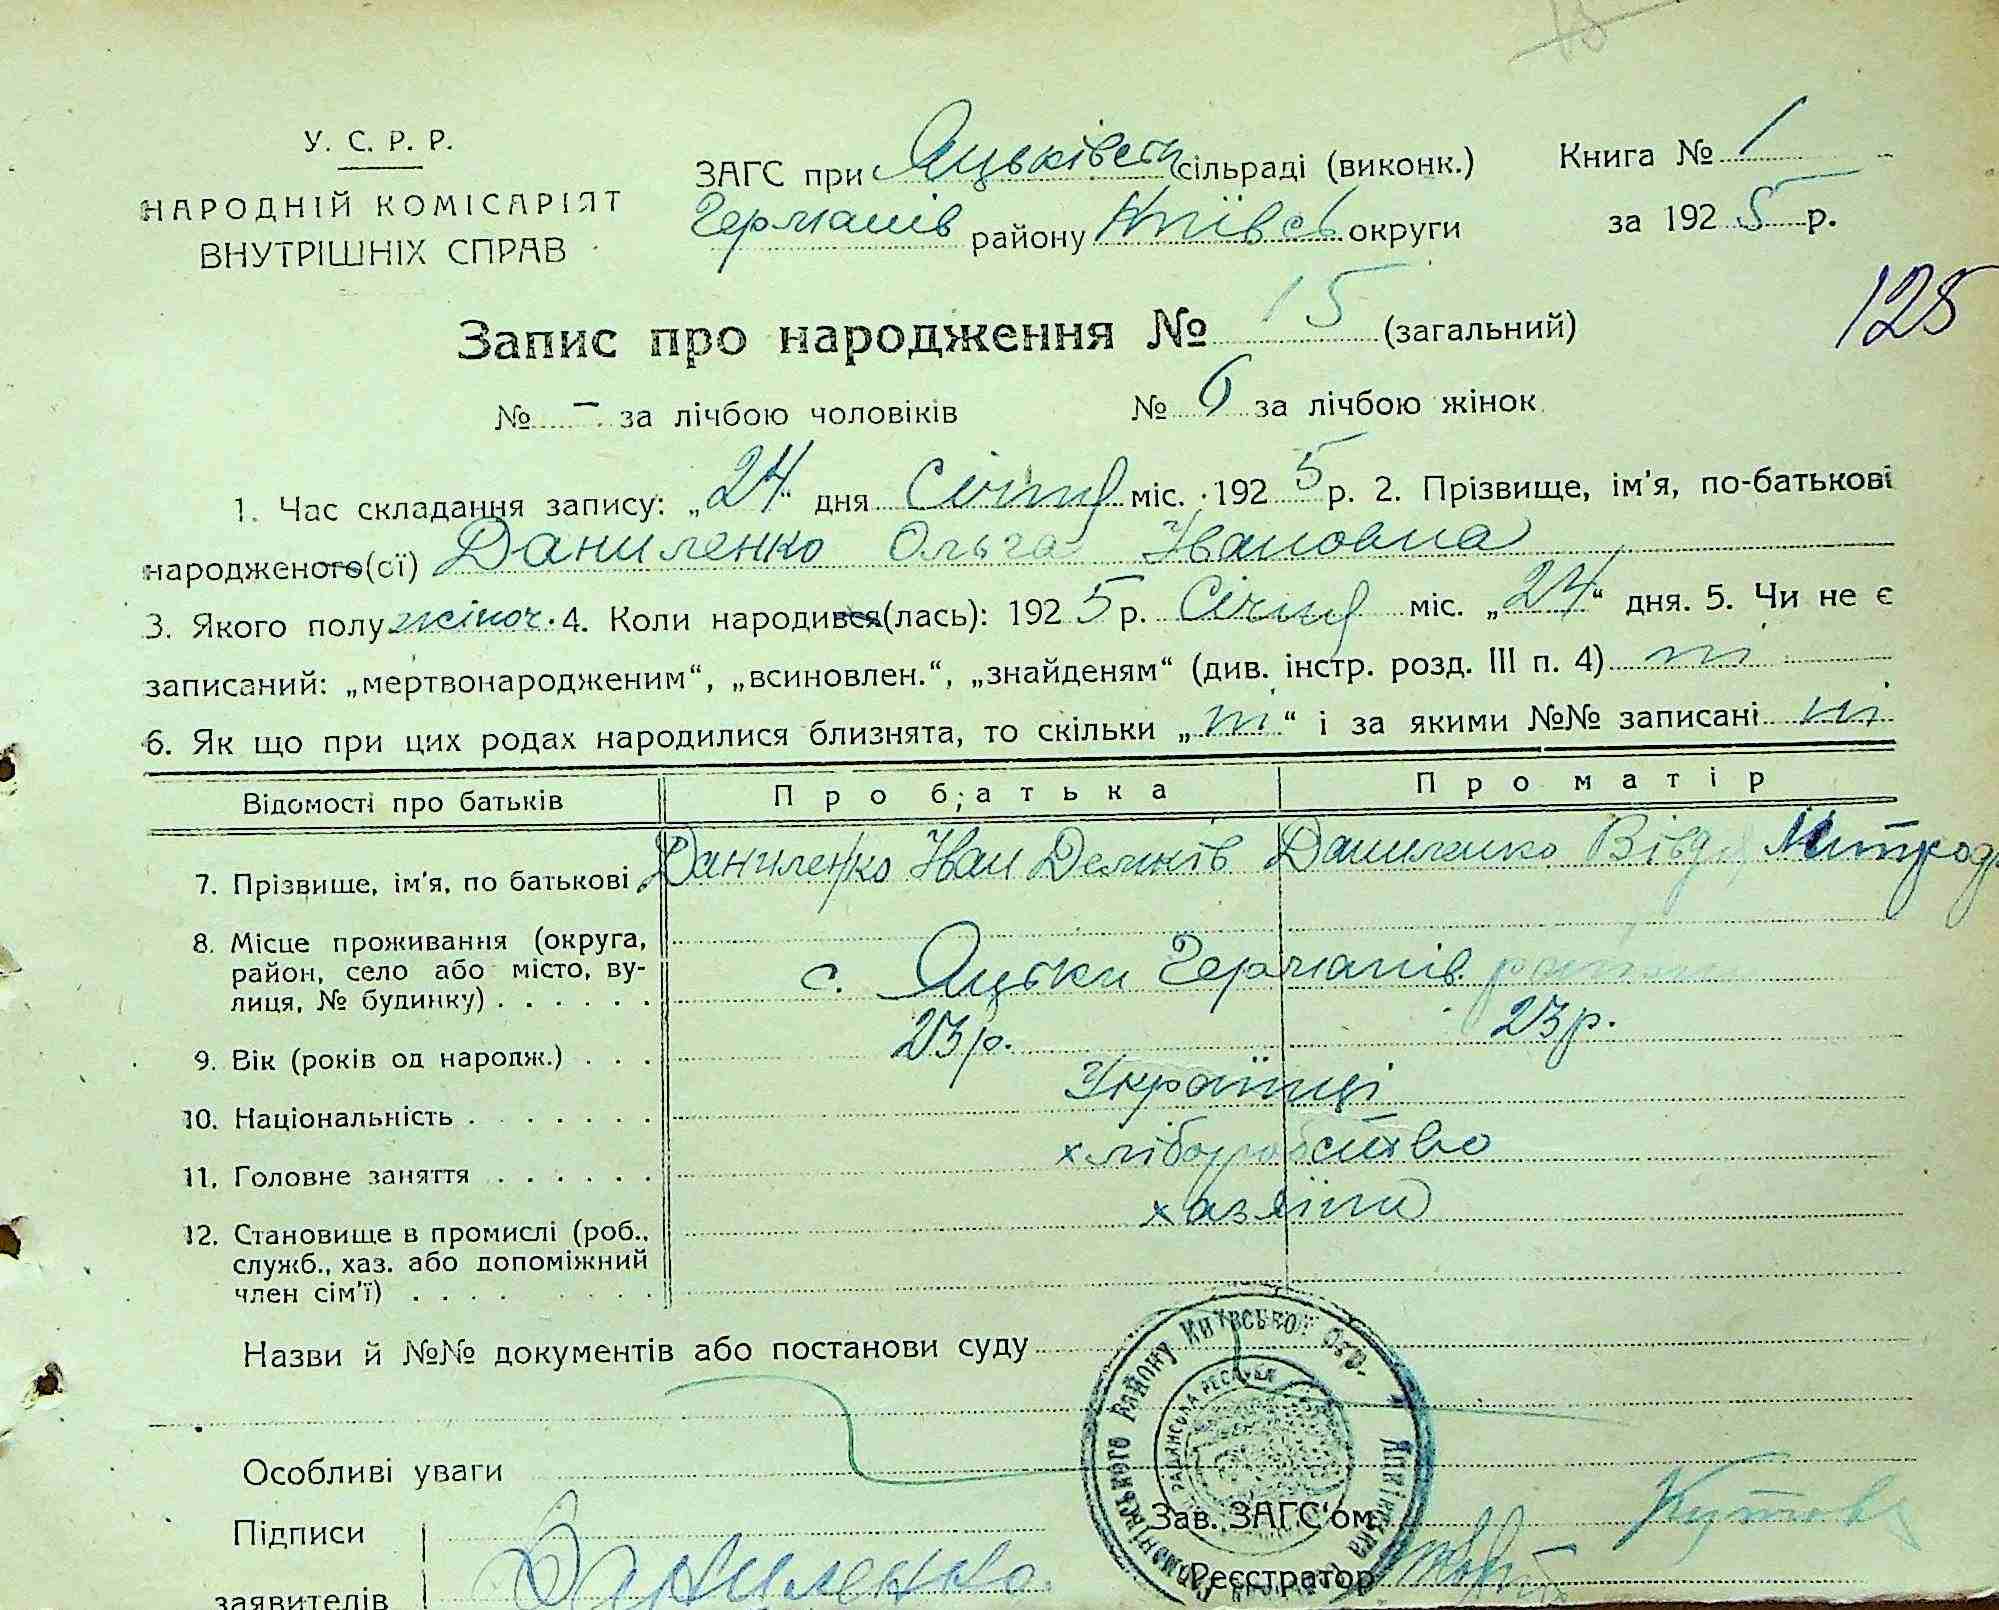 15
У. С. Р. Р.
НАРОДНІЙ КОМІСАРІЯТ
ВНУТРІШНІХ СПРАВ
ЗАГС при Яцьківськ сільраді (виконк.)
Германів району Київськ округи
Книга № 1
за 1925 р.
128
Запис про народження № 15 (загальний)
№ – за лічбою чоловіків № 6 за лічбою жінок
1. Час складання запису: „24“ дня Січня міс. 1925 р. 2. Прізвище, ім'я, по-батькові
народженого(сї) Даниленко Ольга Івановна
3. Якого полу жіноч. 4. Коли народився(лась): 1925 р. Січня міс. „24“ дня. 5. Чи не є
записаний: „мертвонародженим“, „всиновлен.“, „знайденям“ (див. інстр. розд. III п. 4) ні
6. Як що при цих родах народилися близнята, то скільки „ні“ і за якими №№ записані ні
Відомості про батьків Про батька Про матір
7. Прізвище, ім'я, по батькові Даниленко Іван Демків Даниленко Вівд.
8. Місце проживання (округа,
район, село або місто, ву-
лиця, № будинку) с. Яцьки Германів. району
9. Вік (років од народж.) 23 р. 23 р.
10. Національність Українці
11. Головне заняття хліборобство
12. Становище в промислі (роб.,
служб., хаз. або допоміжний
член сім'ї) хазяїни
Назви й №№ документів або постанови суду
Особливі уваги
Підписи
заявителів Даниленко
Зав. ЗАГС'ом
Реєстратор
РАЙОНУ КИЇВСЬКОЇ ОКР.
РАДЯНСЬКА